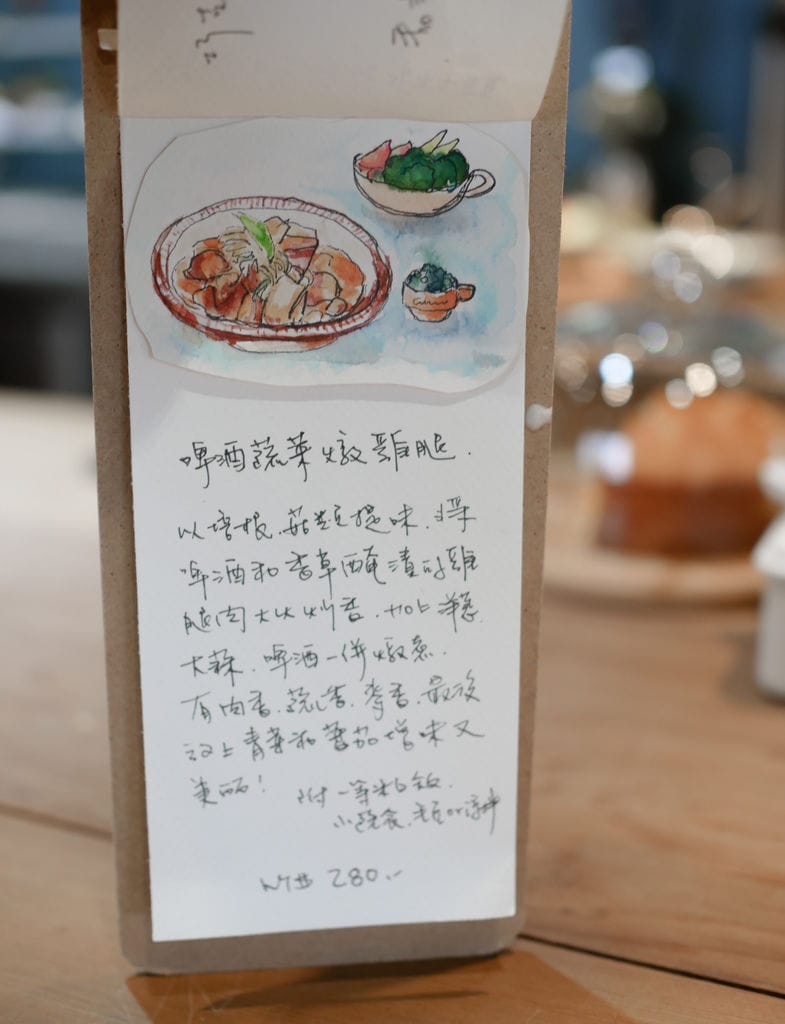 啤酒蔬菜燉雞腿.
以培根.菇類提味.將
啤酒和香草醃漬的雞
腿肉大火炒香.加上洋蔥.
大蒜.啤酒一併燉煮.
有肉香.蔬香.麥香.最後
加上青蔥和蕃茄增味又
美麗!
附一等米白飯.
小蔬食.
NT$ 280.-